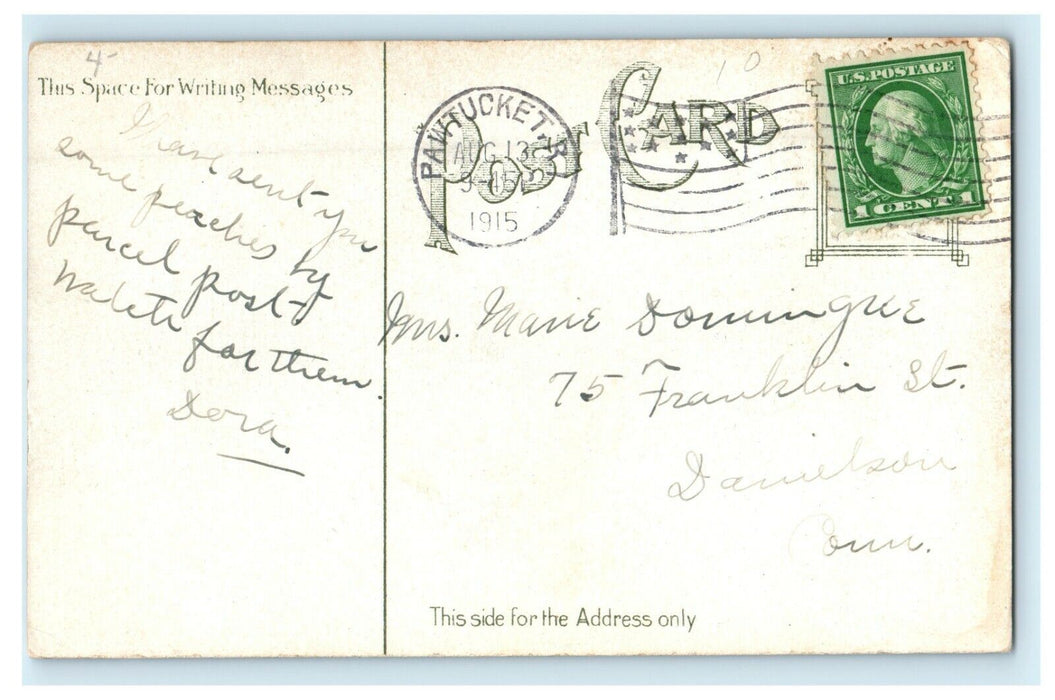 4
This Space For Writing Messages
I have sent you
some peaches by
parcel post.
Watch for them.
Dora.
10
POST CARD
PAWTUCKET, R.I.
AUG 13
1915
U.S. POSTAGE
1 CENT 1
Mrs. Marie Domingue
75 Franklin St.
Danielson
Conn.
This side for the Address only